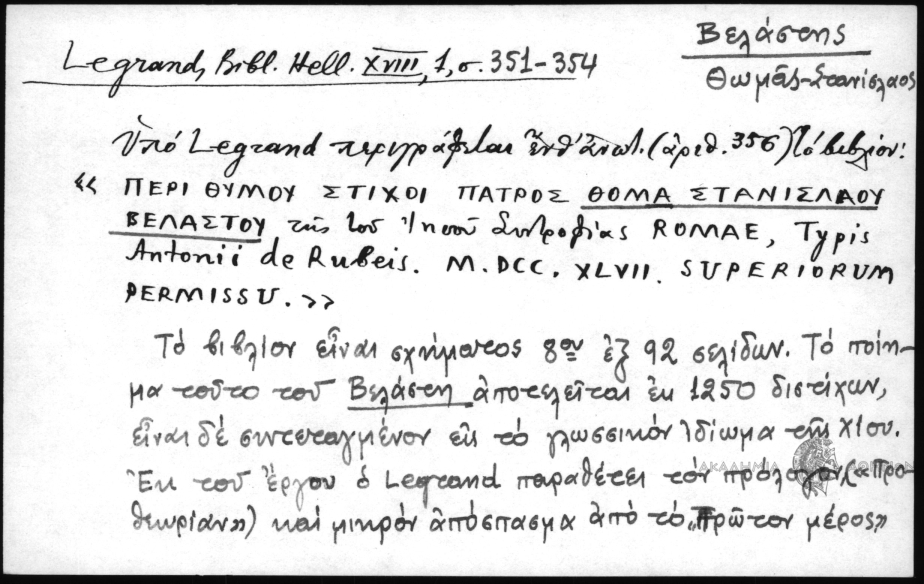 Βελάστης
Θωμᾶς-Στανίσλαος
Legrand, Bibl. Hell. XVIII, 1, σ. 351-354
Ὑπό Legrand περιγράφεται ἔνθ' ἀνωτ. (ἀριθ. 356) τό βιβλίον:
« ΠΕΡΙ ΘΥΜΟΥ ΣΤΙΧΟΙ ΠΑΤΡΟΣ ΘΟΜΑ ΣΤΑΝΙΣΛΑΟΥ
ΒΕΛΑΣΤΟΥ τῆς τοῦ Ἰησοῦ Συντροφίας ROMAE, Typis
Antonii de Rubeis. M.DCC. XLVII. SUPERIORUM
PERMISSU. »
Τό βιβλίον εἶναι σχήματος 8ου ἐξ 92 σελίδων. Τό ποίη-
μα τοῦτο τοῦ Βελάστη ἀποτελεῖται ἐκ 1250 διστίχων,
εἶναι δέ συντεταγμένον εἰς τό γλωσσικόν ἰδίωμα τῆς Χίου.
Ἐκ τοῦ ἔργου ὁ Legrand παραθέτει τόν πρόλογον («Προ-
θεωρίαν») καί μικρόν ἀπόσπασμα ἀπό τό „Πρῶτον μέρος»
ΑΚΑΔΗΜΙΑ